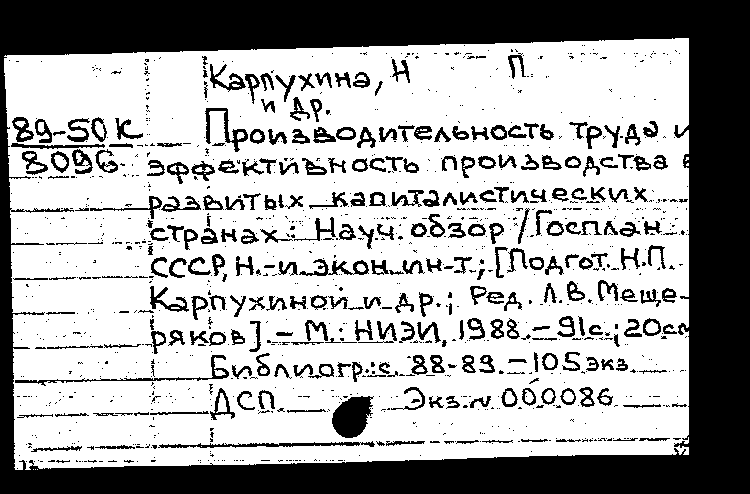 Карпухина, Н П
и др.
89-50К
8096
Производительность труда и
эффективность производства в
развитых капиталистических
странах: Науч. обзор / Госплан
СССР, Н.-и. экон. ин-т; [Подгот. Н.П.
Карпухиной и др.; Ред. Л.В. Меще-
ряков]. – М.: НИЭИ, 1988. – 91с.; 20см
Библиогр.: с. 88-89. – 105 экз.
ДСП. Экз. N 000086